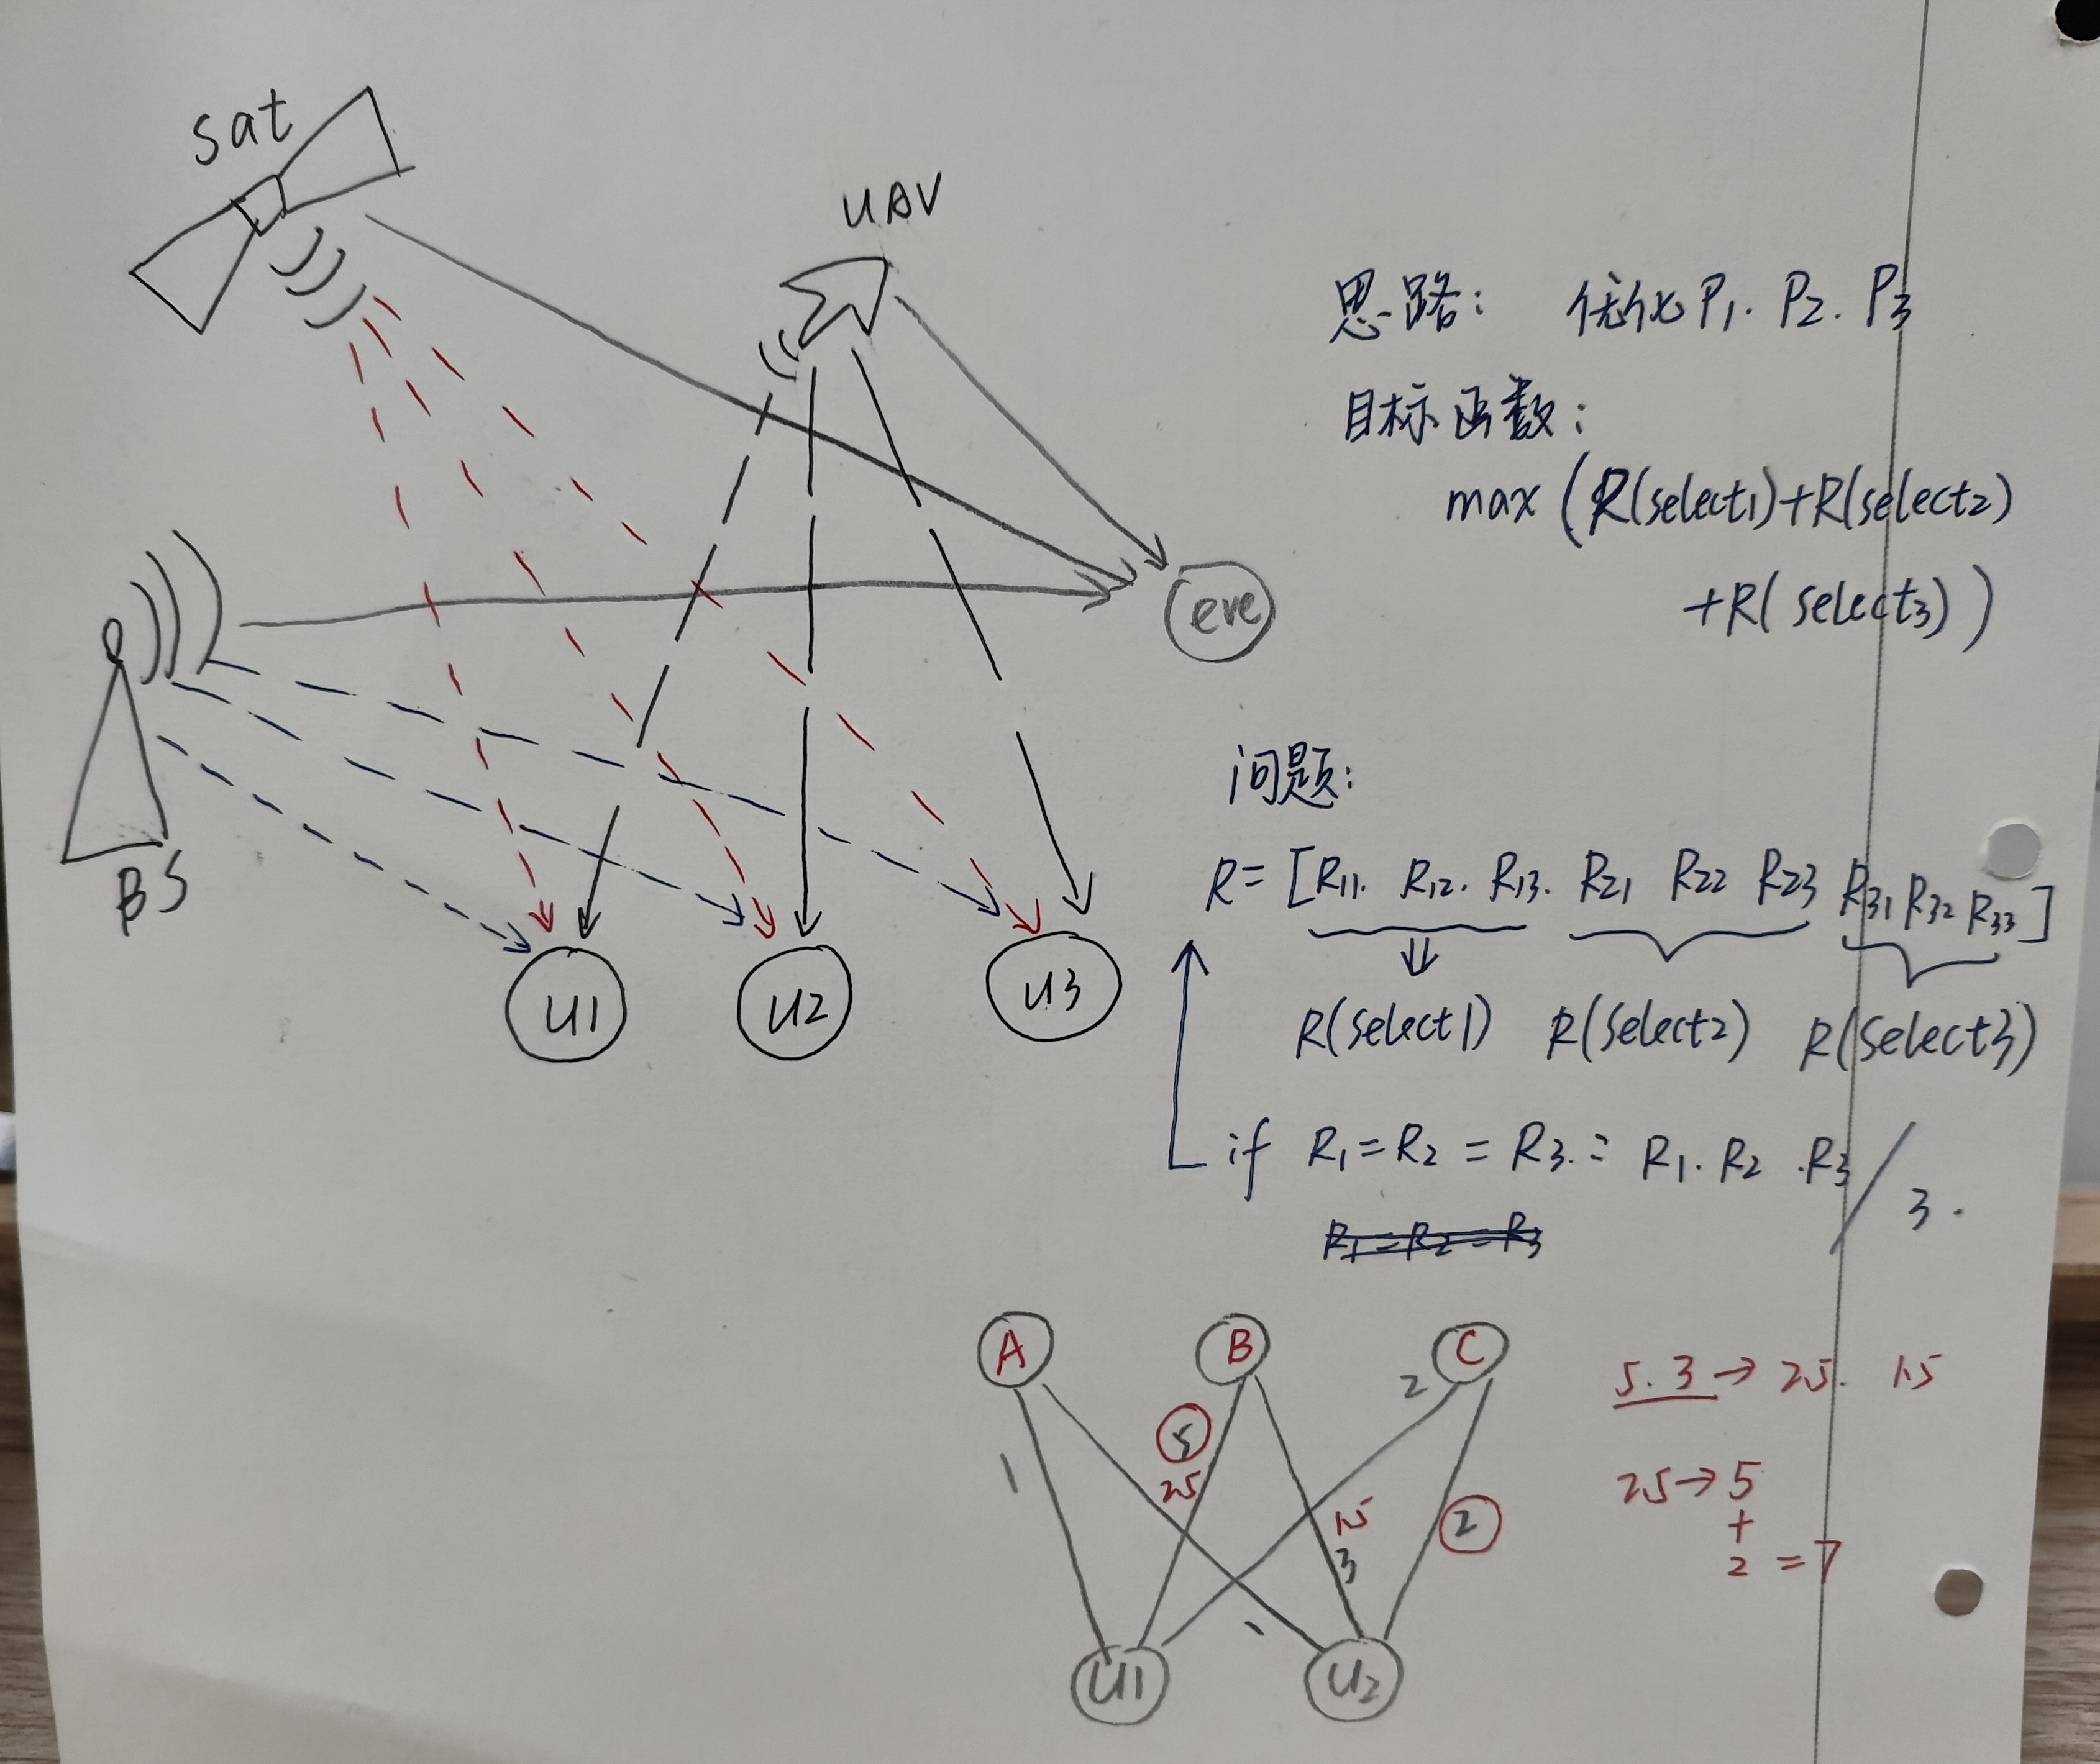 sat
UAV
BS
eve
U1
U2
U3
思路： 优化 P1. P2. P3
目标函数：
max (R(select1)+R(select2)
+R(select3))
问题：
R= [R11. R12. R13. R21 R22 R23 R31 R32 R33]
R(select1) R(select2) R(select3)
if R1=R2 = R3. = R1. R2 .R3 / 3.
R1=R2=R3
A B C
5. 3 → 2.5. 1.5
1
5
2.5
1.5
3
2
2
2.5→5
+
2 =7
U1 U2